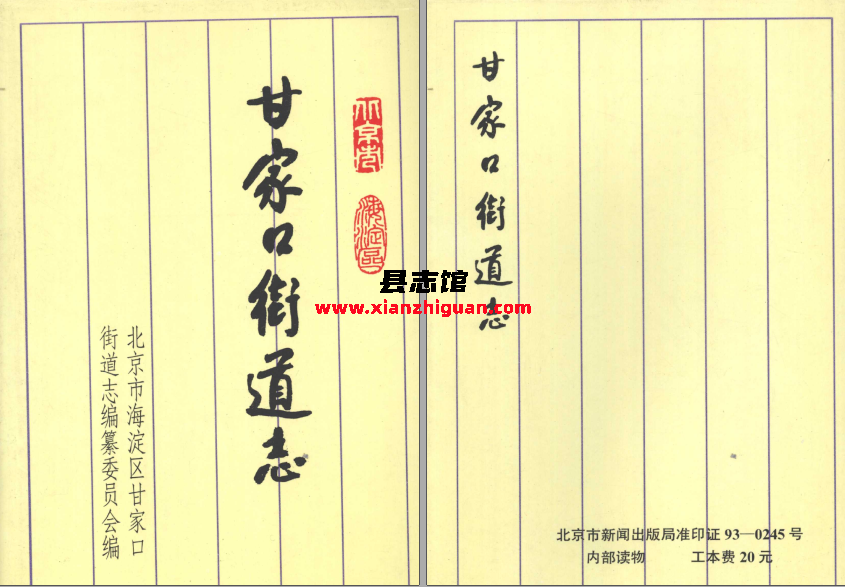 甘家口街道志
北京市
海淀区
北京市海淀区甘家口
街道志编纂委员会编
县志馆
www.xianzhiguan.com
甘家口街道志
北京市新闻出版局准印证 93—0245 号
内部读物 工本费 20 元